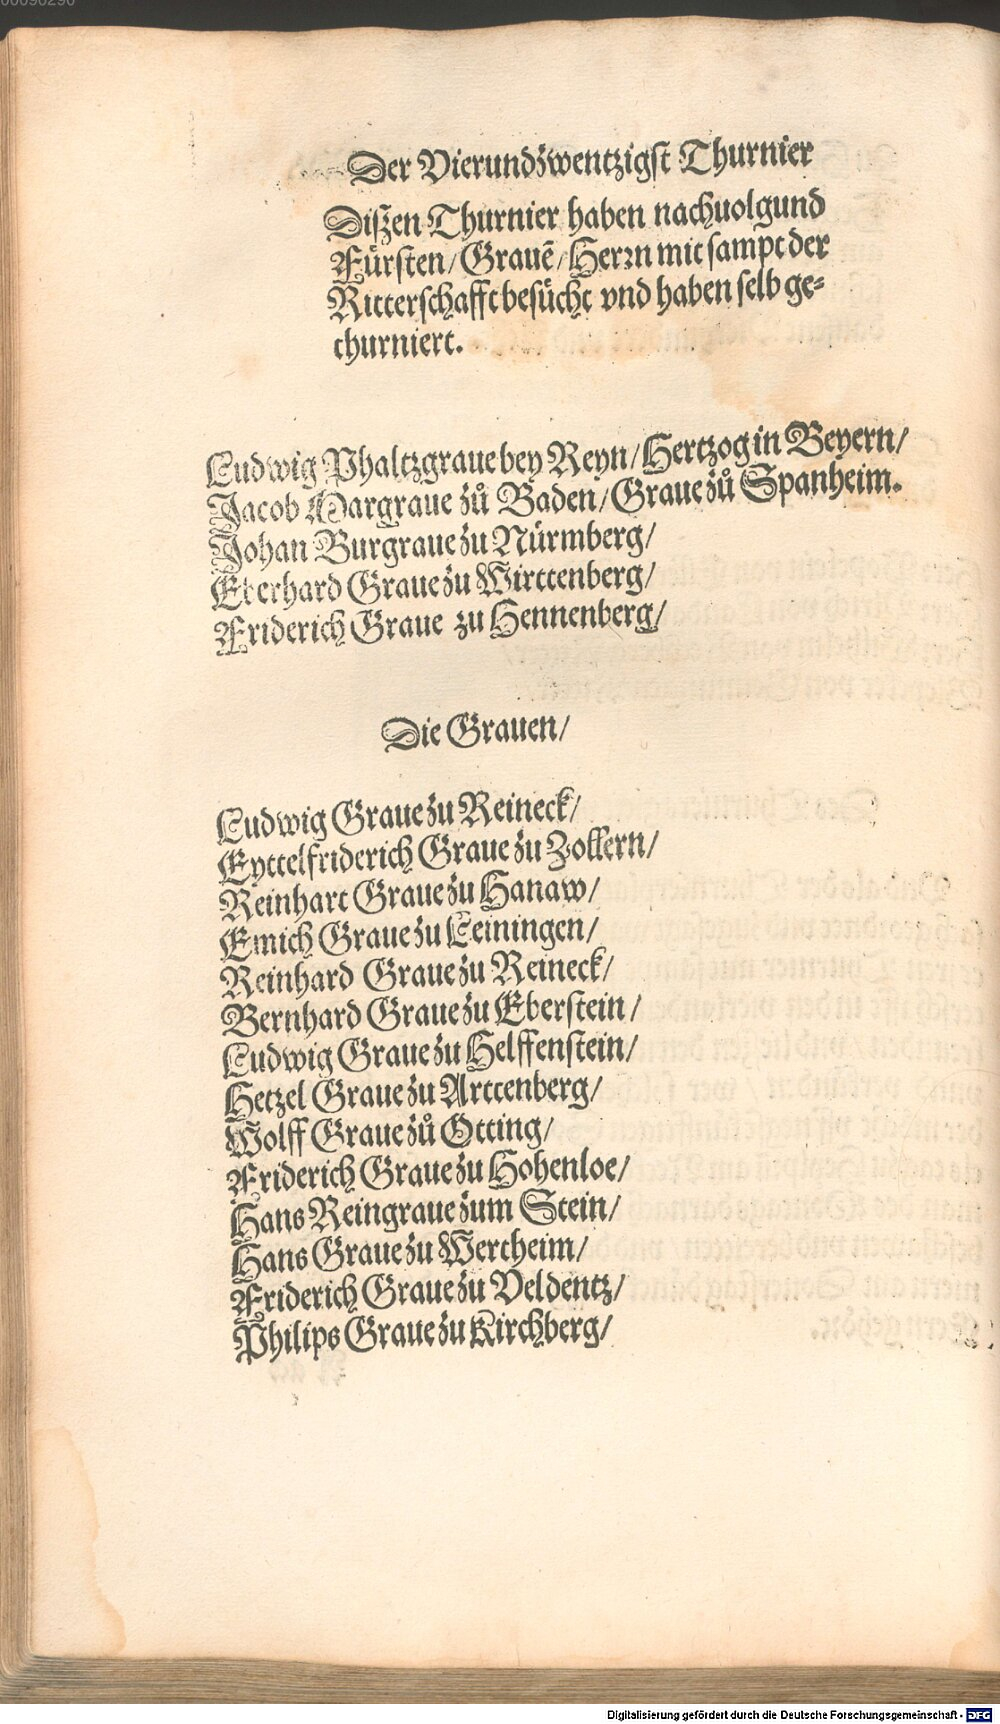 00090296
Der Vierundzwentzigst Thurnier
Diszen Thurnier haben nachuolgund
Fürsten/Grauē/Herrn mit sampt der
Ritterschafft besücht vnd haben selb ge=
thurniert.
Ludwig Phaltzgraue bey Reyn/Hertzog in Beyern/
Jacob Margraue zů Baden/Graue zů Spanheim.
Johan Burgraue zu Nürmberg/
Eberhard Graue zu Wirttenberg/
Friderich Graue zu Hennenberg/
Die Grauen/
Ludwig Graue zu Reineck/
Eyttelfriderich Graue zu Zollern/
Reinhart Graue zu Hanaw/
Emich Graue zu Leiningen/
Reinhard Graue zu Reineck/
Bernhard Graue zu Eberstein/
Ludwig Graue zu Helffenstein/
Hetzel Graue zu Arttenberg/
Wolff Graue zů Otting/
Friderich Graue zu Hohenloe/
Hans Reingraue zum Stein/
Hans Graue zu Wertheim/
Friderich Graue zu Veldentz/
Philips Graue zu Kirchberg/
Digitalisierung gefördert durch die Deutsche Forschungsgemeinschaft - DFG